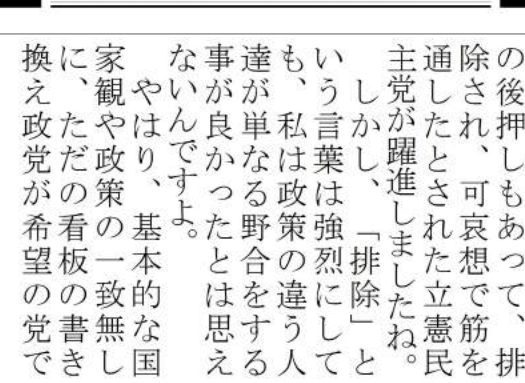 の後押しもあって、排
除され、可哀想で筋を
通したとされた立憲民
主党が躍進しましたね。
しかし、「排除」と
いう言葉は強烈にして
も、私は政策の違う人
達が単なる野合をする
事が良かったとは思え
ないんですよ。
やはり、基本的な国
家観や政策の一致無し
に、ただの看板の書き
換え政党が希望の党で